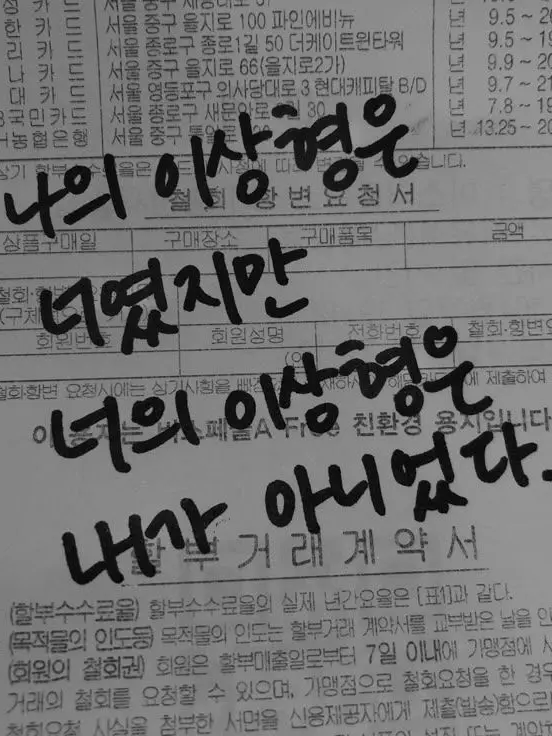 카드 서울 중구 세종대로
한 카드 서울 중구 을지로 100 파인에비뉴 년 9.5 ~
리 카드 서울 종로구 종로1길 50 더케이트윈타워 년 9.5 ~ 2
나 카드 서울 중구 을지로 66(을지로2가) 년 9.9 ~ 20
대 카드 서울 영등포구 의사당대로 3 현대캐피탈 B/D 년 9.7 ~ 21
국민카드 서울 종로구 새문안로 30 년 7.8 ~ 19
농협은행 서울 중구 년 13.25 ~ 20
나의 이상형은
철회·항변요청서
상품구매일 구매장소 구매품목 금액
너였지만
회원번호 회원성명 전화번호 철회·항변
철회·항변 요청시에는 상기사항을 제출하여
너의 이상형은
이 용지는 Free 친환경 용지입니다
내가 아니었다.
할부거래계약서
(할부수수료율) 할부수수료율의 실제 년간요율은 [표1]과 같다.
(목적물의 인도등) 목적물의 인도는 할부거래 계약서를 교부받은 날을 인
(회원의 철회권) 회원은 할부매출일로부터 7일 이내에 가맹점에 서
거래의 철회를 요청할 수 있으며, 가맹점으로 철회요청을 한 경우
철회요청 사실을 첨부한 서면을 신용제공자에게 제출(발송)함으로